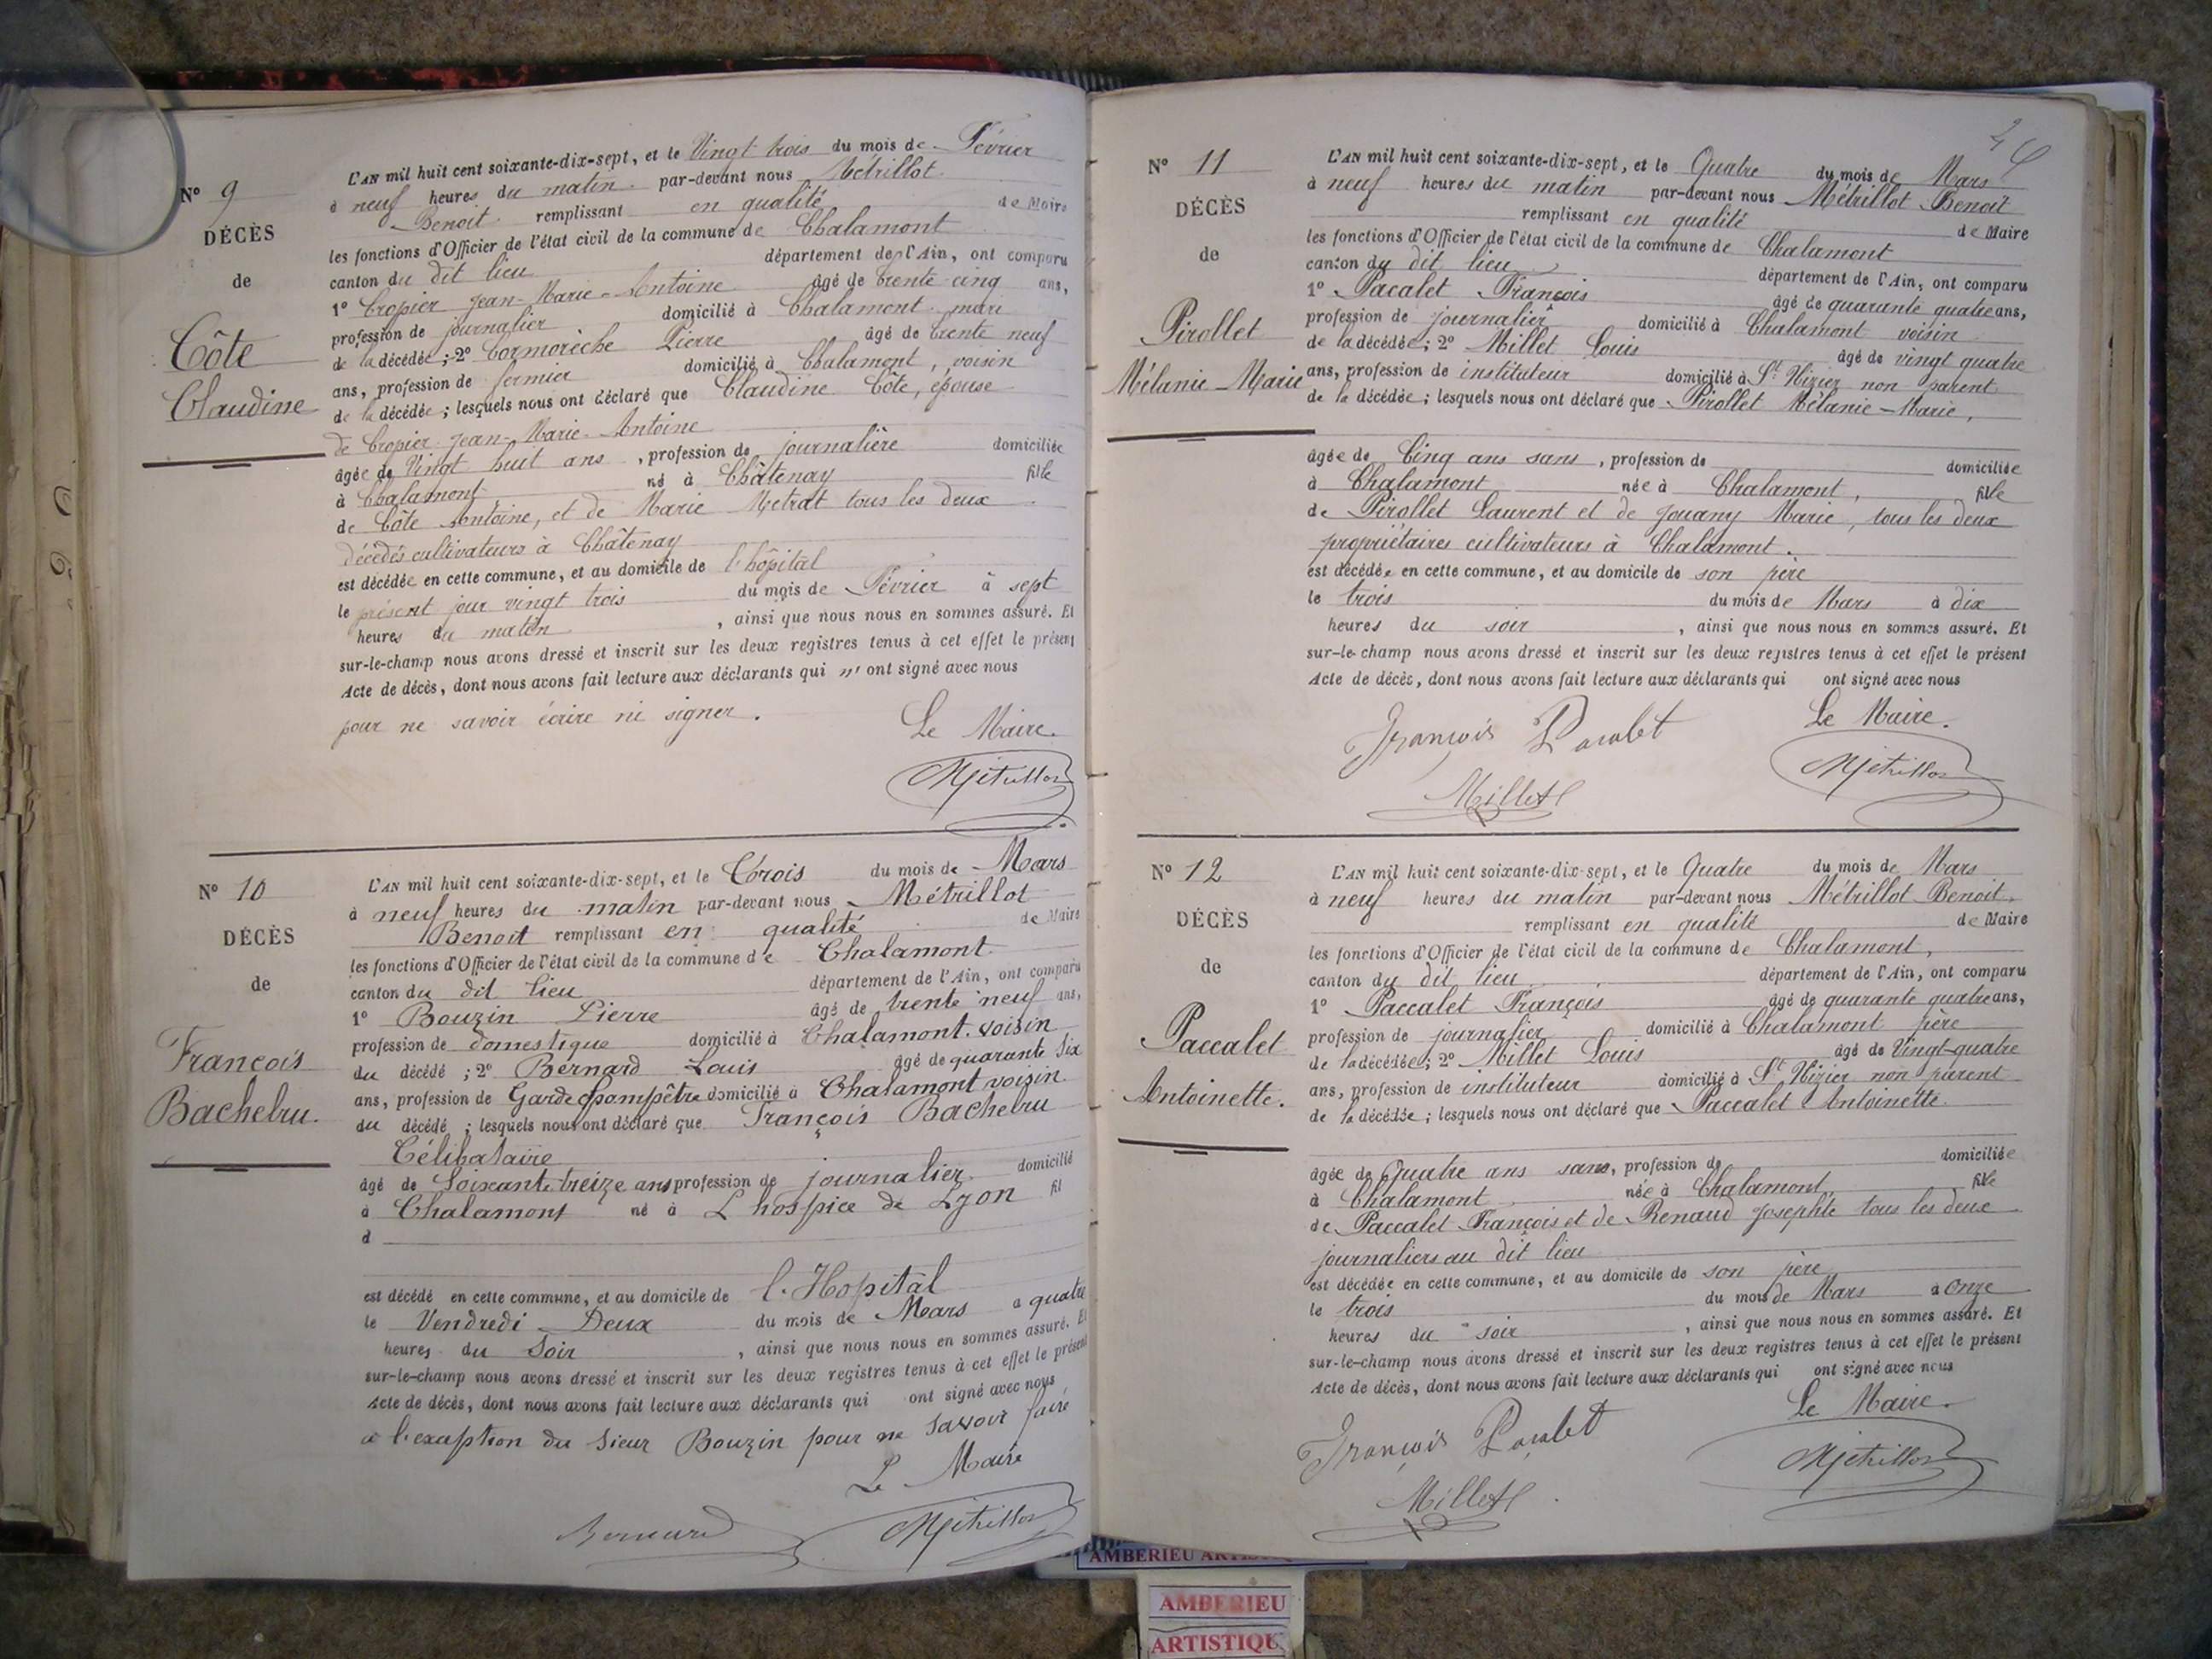 N° 9
DÉCÈS
de
Côte
Claudine
L'AN mil huit cent soixante-dix-sept, et le Vingt trois du mois de Février
à neuf heures du matin par-devant nous Métrillot
Benoit remplissant en qualité de Maire
les fonctions d'Officier de l'état civil de la commune de Chalamont
canton du dit lieu département de l'Ain, ont comparu
1° Cropier Jean-Marie-Antoine âgé de trente cinq ans,
profession de journalier domicilié à Chalamont mari
de la décédée ; 2° Cormorèche Pierre âgé de trente neuf
ans, profession de fermier domicilié à Chalamont, voisin
de la décédée ; lesquels nous ont déclaré que Claudine Côte, épouse
de Cropier Jean-Marie-Antoine
âgée de Vingt huit ans , profession de journalière domiciliée
à Chalamont né à Châtenay fille
de Côte Antoine, et de Marie Metrat tous les deux
décédés cultivateurs à Châtenay
est décédée en cette commune, et au domicile de l'hôpital
le présent jour vingt trois du mois de Février à sept
heures du matin , ainsi que nous nous en sommes assuré. Et
sur-le-champ nous avons dressé et inscrit sur les deux registres tenus à cet effet le présent
Acte de décès, dont nous avons fait lecture aux déclarants qui n' ont signé avec nous
pour ne savoir écrire ni signer.
Le Maire.
Métrillot
N° 10
DÉCÈS
de
François
Bachelru.
L'AN mil huit cent soixante-dix-sept, et le Trois du mois de Mars
à neuf heures du matin par-devant nous Métrillot
Benoit remplissant en qualité de Maire
les fonctions d'Officier de l'état civil de la commune de Chalamont
canton du dit lieu département de l'Ain, ont comparu
1° Bouzin Pierre âgé de trente neuf ans,
profession de domestique domicilié à Chalamont. voisin
du décédé ; 2° Bernard Louis âgé de quarante six
ans, profession de Garde champêtre domicilié à Chalamont voisin
du décédé ; lesquels nous ont déclaré que François Bachelru
Célibataire
âgé de Soixante treize ans profession de journalier domicilié
à Chalamont né à L'hospice de Lyon fil
d
est décédé en cette commune, et au domicile de l'Hopital
le Vendredi Deux du mois de Mars a quatre
heures du Soir , ainsi que nous nous en sommes assuré. Et
sur-le-champ nous avons dressé et inscrit sur les deux registres tenus à cet effet le présent
Acte de décès, dont nous avons fait lecture aux déclarants qui ont signé avec nous
a l'exaption du Sieur Bouzin pour ne Savoir faire
Le Maire
Bernard Métrillot
N° 11
DÉCÈS
de
Pirollet
Mélanie-Marie
L'AN mil huit cent soixante-dix-sept, et le Quatre du mois de Mars
à neuf heures du matin par-devant nous Métrillot Benoit
remplissant en qualité de Maire
les fonctions d'Officier de l'état civil de la commune de Chalamont
canton du dit lieu département de l'Ain, ont comparu
1° Pacalet François âgé de quarante quatre ans,
profession de journalier domicilié à Chalamont voisin
de la décédée ; 2° Millet Louis âgé de vingt quatre
ans, profession de instituteur domicilié à St Nizier non parent
de la décédée ; lesquels nous ont déclaré que Pirollet Mélanie-Marie,
âgée de Cinq ans sans , profession de domiciliée
à Chalamont née à Chalamont, fille
de Pirollet Laurent et de Jouany Marie, tous les deux
propriétaires cultivateurs à Chalamont.
est décédée en cette commune, et au domicile de son père
le trois du mois de Mars à dix
heures du soir , ainsi que nous nous en sommes assuré. Et
sur-le-champ nous avons dressé et inscrit sur les deux registres tenus à cet effet le présent
Acte de décès, dont nous avons fait lecture aux déclarants qui ont signé avec nous
François Pacalet Le Maire.
Millet Métrillot
N° 12
DÉCÈS
de
Paccalet
Antoinette.
L'AN mil huit cent soixante-dix-sept, et le Quatre du mois de Mars
à neuf heures du matin par-devant nous Métrillot Benoit,
remplissant en qualité de Maire
les fonctions d'Officier de l'état civil de la commune de Chalamont,
canton du dit lieu département de l'Ain, ont comparu
1° Paccalet François âgé de quarante quatre ans,
profession de journalier domicilié à Chalamont père
de la décédée ; 2° Millet Louis âgé de Vingt-quatre
ans, profession de instituteur domicilié à St Nizier non parent
de la décédée ; lesquels nous ont déclaré que Paccalet Antoinette
âgée de Quatre ans sans, profession de domiciliée
à Chalamont née à Chalamont, fille
de Paccalet François et de Renaud Josephte tous les deux
journaliers au dit lieu
est décédée en cette commune, et au domicile de son père
le trois du mois de Mars à onze
heures du soir , ainsi que nous nous en sommes assuré. Et
sur-le-champ nous avons dressé et inscrit sur les deux registres tenus à cet effet le présent
Acte de décès, dont nous avons fait lecture aux déclarants qui ont signé avec nous
François Pacalet Le Maire.
Millet Métrillot
AMBERIEU
AMBERIEU
ARTISTIQU